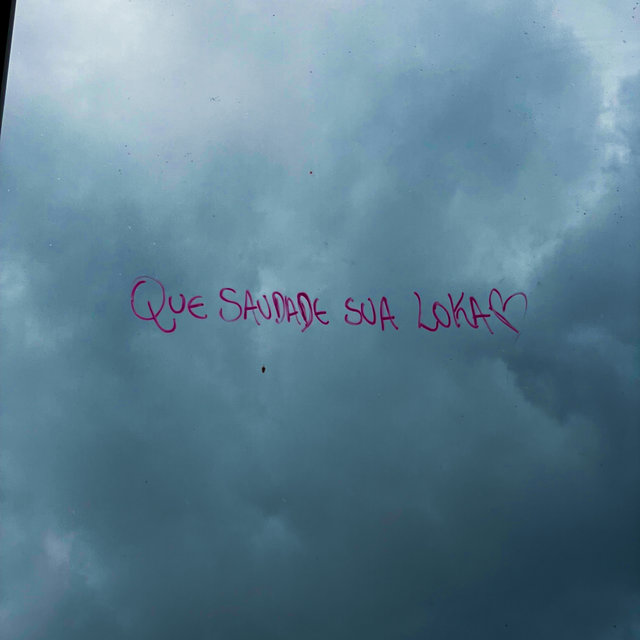 QUE SAUDADE SUA LOKA♡